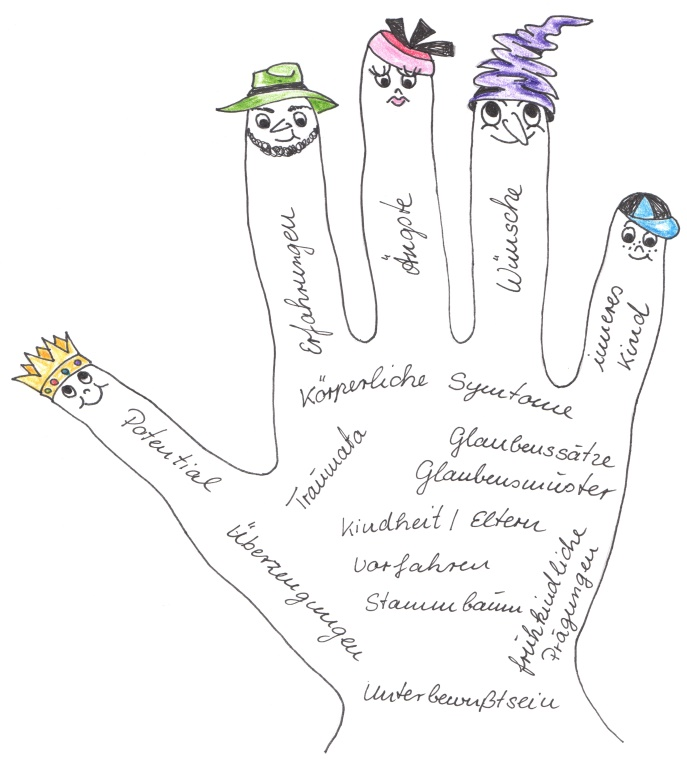 Erfahrungen
Ängste
Wünsche
inneres
Kind
Potential
Körperliche Symtome
Traumata
Glaubenssätze
Glaubensmuster
Kindheit / Eltern
Überzeugungen
Vorfahren
Stammbaum
frühkindliche
Prägungen
Unterbewußtsein